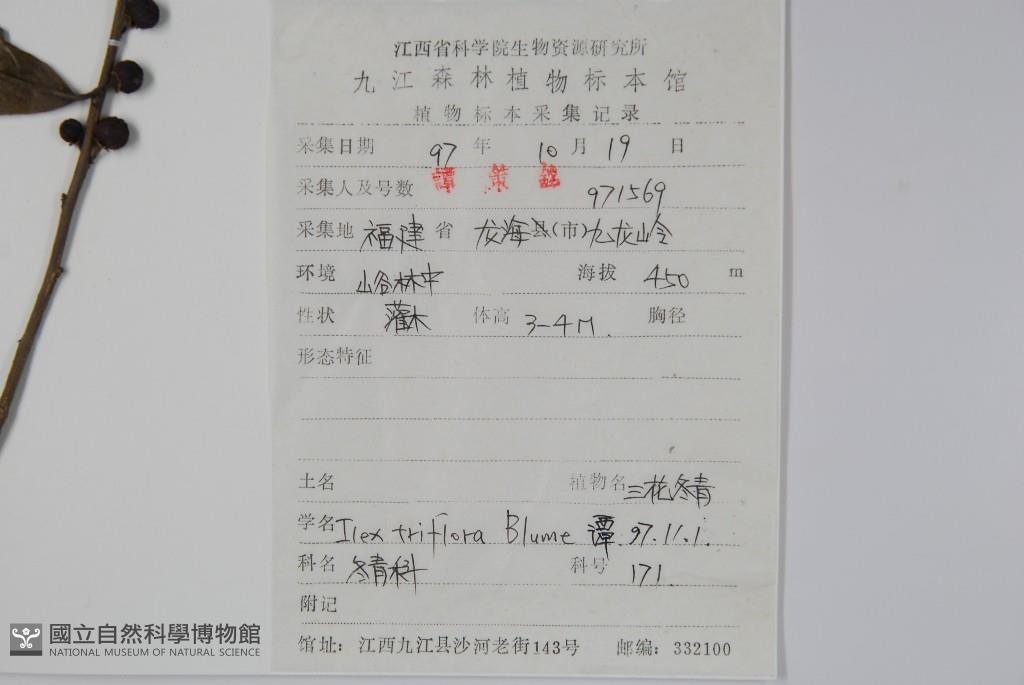 江西省科学院生物资源研究所
九江森林植物标本馆
植物标本采集记录
采集日期 97 年 10 月 19 日
采集人及号数 譚策銘 971569
采集地 福建 省 龙海 县(市) 九龙岭
环境 山谷林中 海拔 450 m
性状 灌木 体高 3-4M. 胸径
形态特征
土名 植物名 三花冬青
学名 Ilex triflora Blume 谭. 97.11.1.
科名 冬青科 科号 171.
附记
馆址: 江西九江县沙河老街143号 邮编: 332100
國立自然科學博物館
NATIONAL MUSEUM OF NATURAL SCIENCE